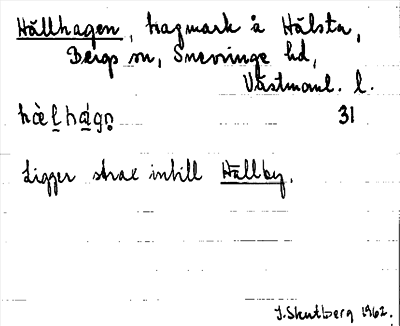 Hällhagen, hagmark å Hälsta,
Bergs sn, Snevringe hd,
Västmanl. l.
hæ̀l̠há̠gn̥ 31
Ligger strax intill Hällby.
J. Skutberg 1962.